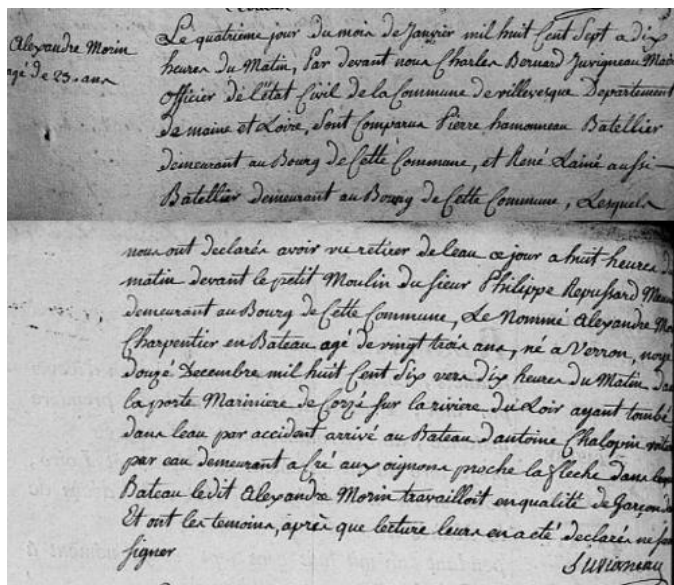 Alexandre Morin
agé de 23. ans
Le quatrième jour du mois de Janvier mil huit Cent Sept a dix
heures du Matin, Par devant nous Charles Bernard Juvigneau Mai
officier de l'état Civil de la Commune de villevesque Departement
de maine et Loire, Sont Comparus Pierre hamonneau Batellier
demeurant au Bourg de Cette Commune, et René Lainé aussi
Batellier demeurant au Bourg de Cette Commune, Lesquels
nous ont declarés avoir vu retirer de leau ce jour a huit heures d
matin devant le petit Moulin du sieur Philippe Repussard Meun
demeurant au Bourg de Cette Commune, Le Nommé Alexandre Mo
Charpentier en Bateau agé de vingt trois ans, né a Verron, noye
douzé Decembre mil huit Cent Six vers dix heures du Matin da
la porte Mariniere de Corzé sur la riviere du Loir ayant tombé
dans leau par accident arrivé au Bateau d'antoine Chalopin
par eau demeurant a Cré aux oignons proche la fleche dans
Bateau ledit Alexandre Morin travailloit en qualité de Garçon
Et ont les temoins, après que lecture leurs en a eté declarés ne
signer
Juvigneau